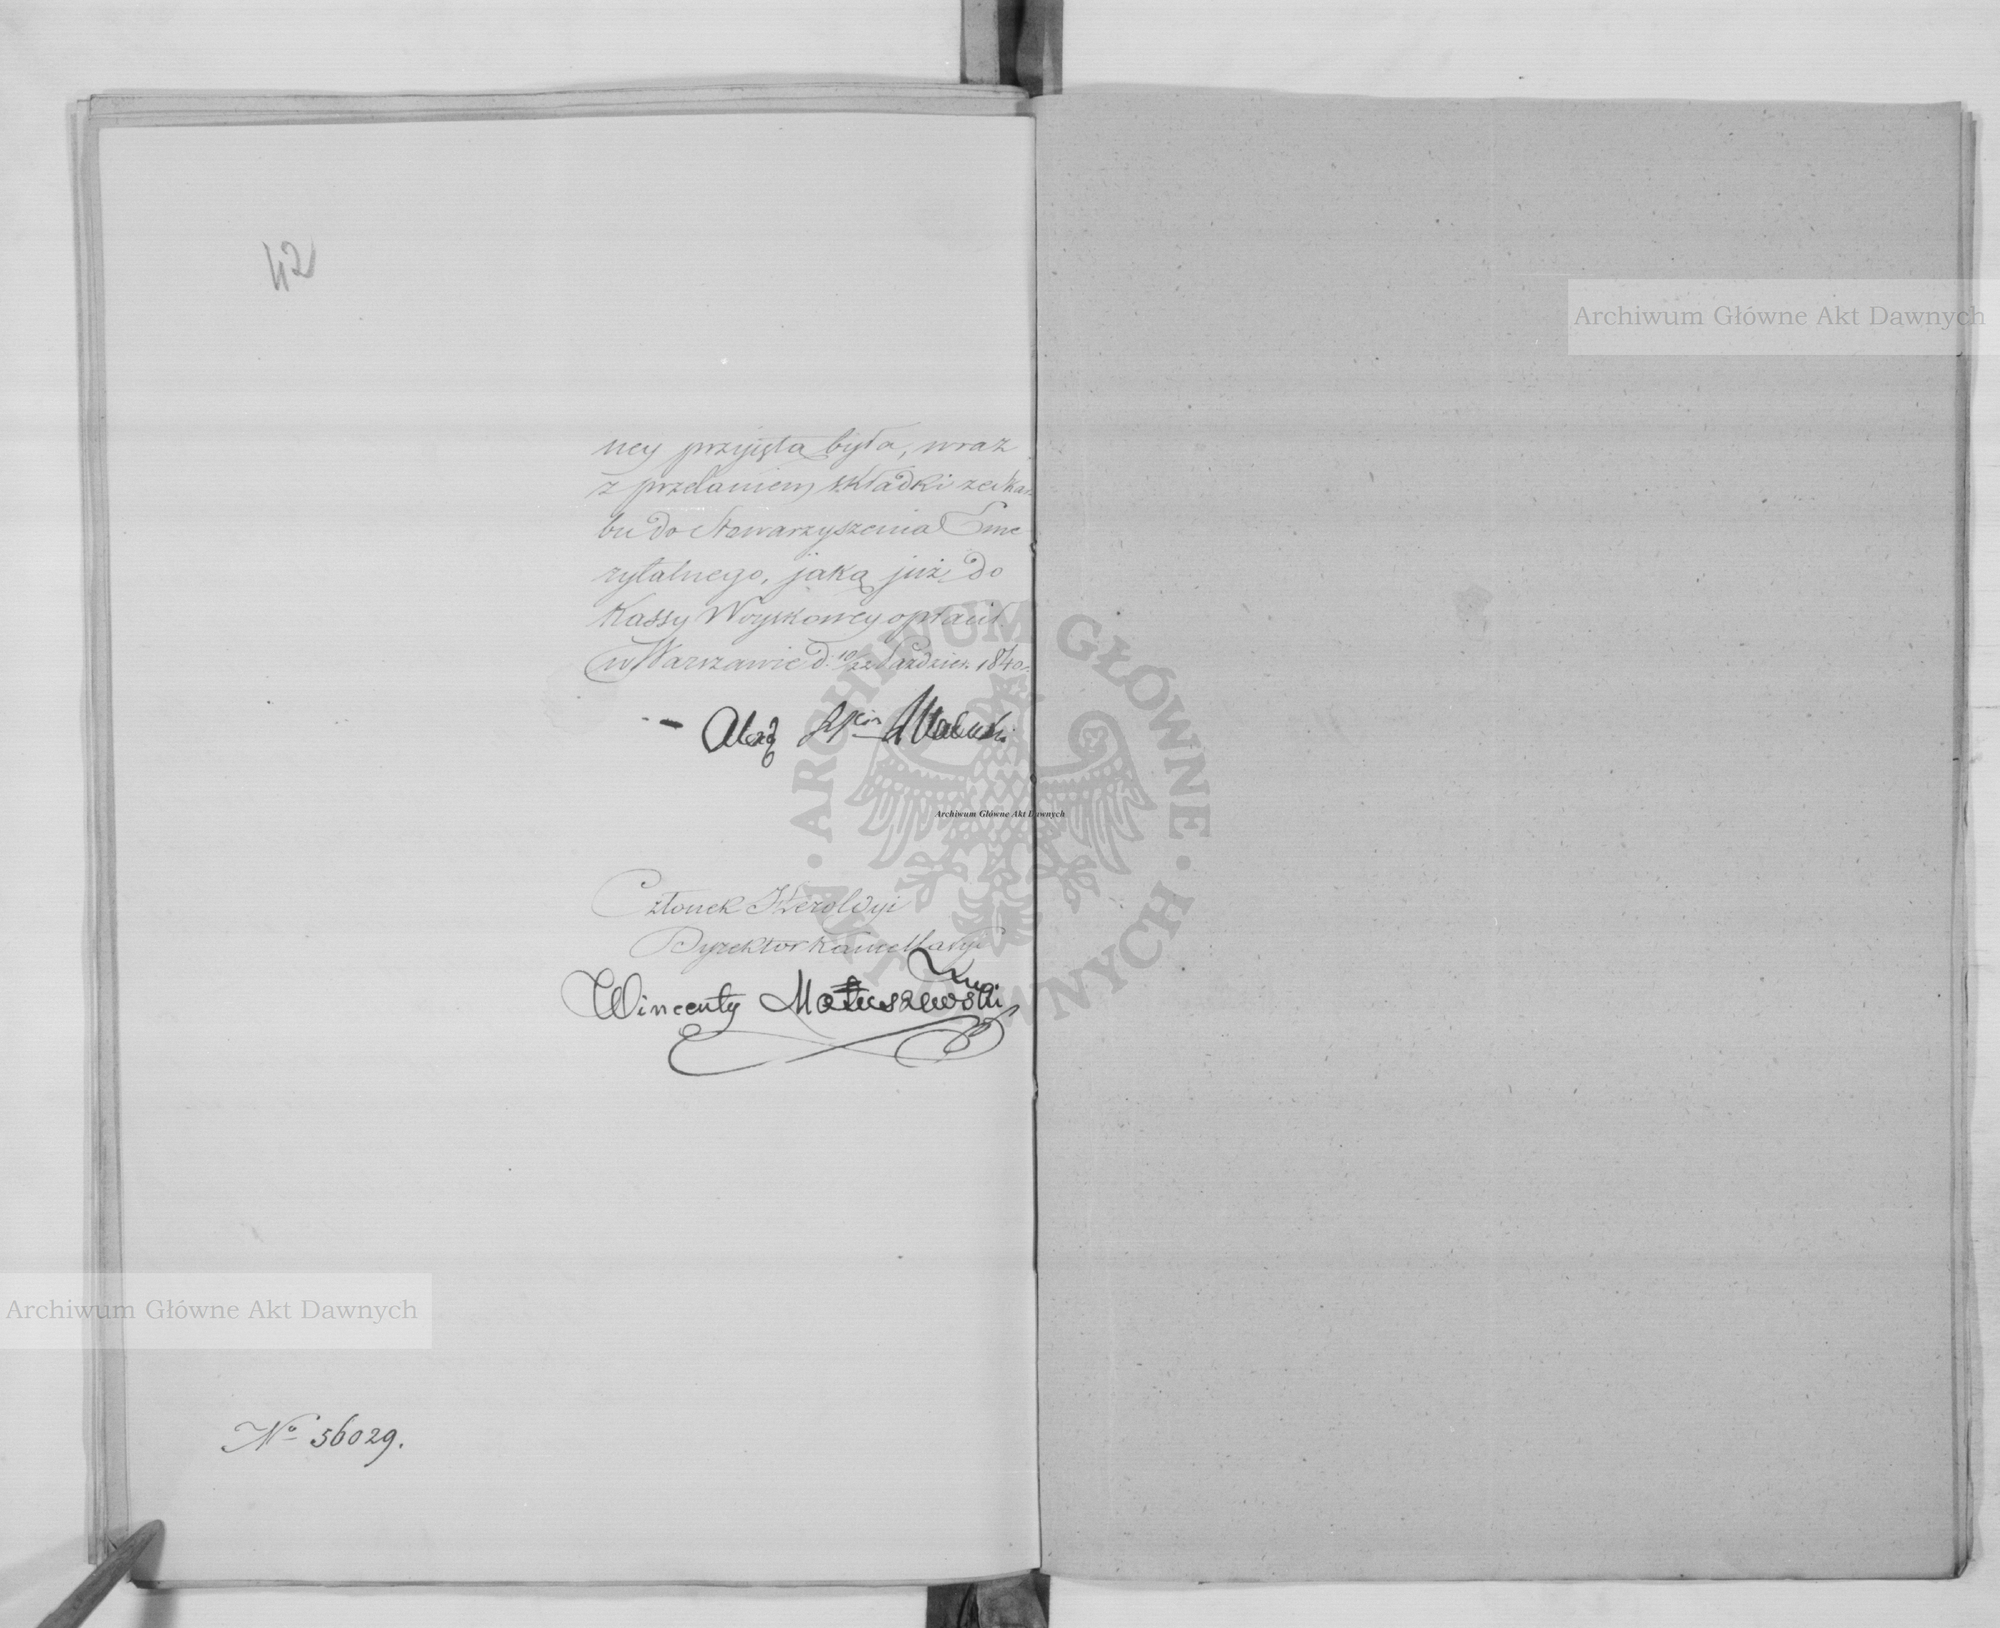 42
ney przyjęta była, wraz
z przelaniem składki ze skar
bu do Stowarzyszenia Eme
rytalnego, jaką już do
Kassy Woyskowey opłacił.
w Warszawie d. 10/22 Paździer. 1840
Członek Heroldyi
Dyrektor Kancellaryi
Wincenty Matuszewski
No 56029.
Archiwum Główne Akt Dawnych
Archiwum Główne Akt Dawnych
Archiwum Główne Akt Dawnych
ARCHIWUM GŁÓWNE AKT DAWNYCH